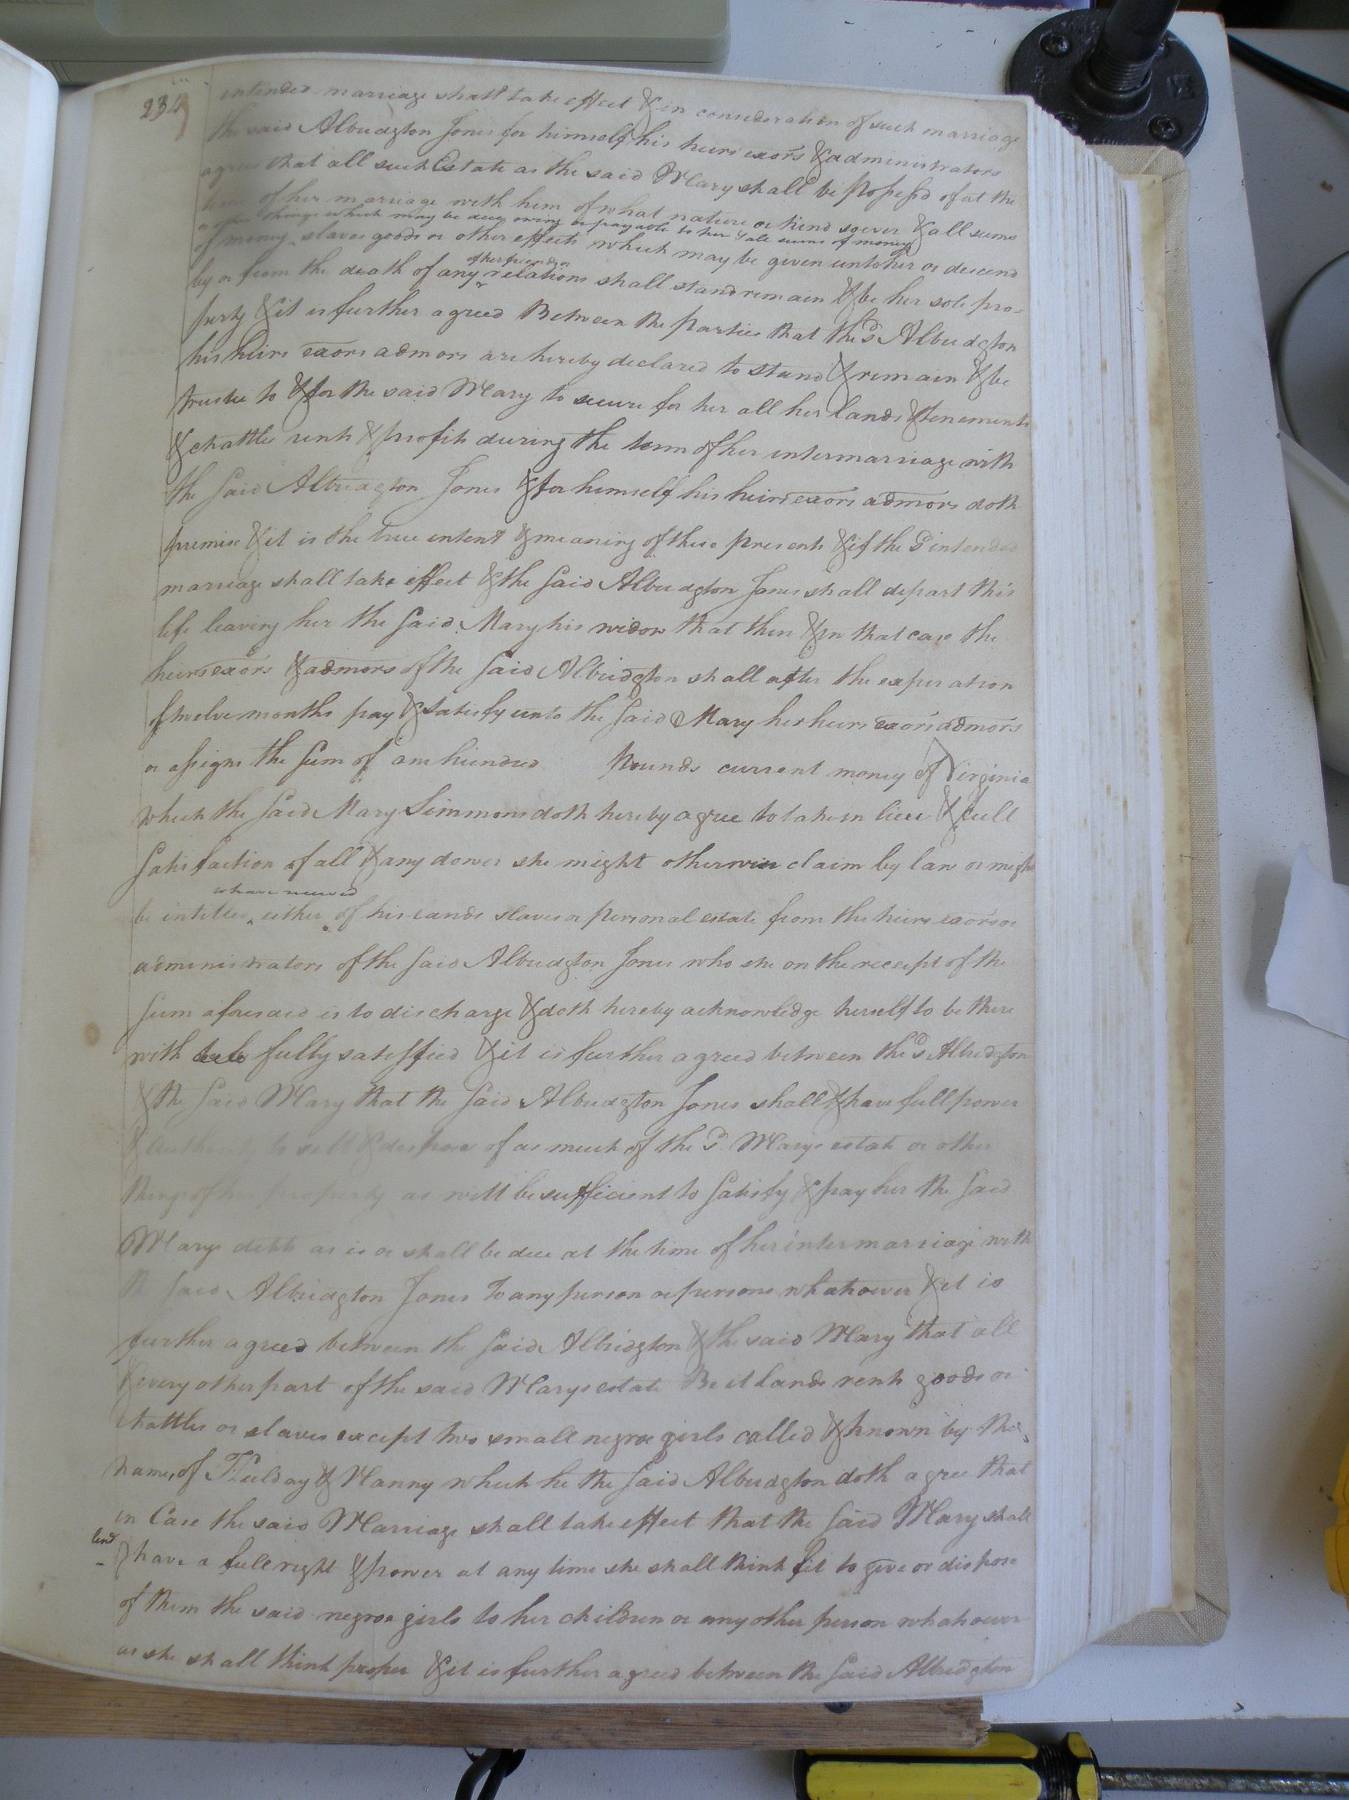 234
intended marriage shall take effect & in consideration of such marriage
the said Albridgton Jones for himself his heirs exors & administrators
agrees that all such Estate as the said Mary shall be possessd of at the
time of her marriage with him of what nature or kind soever & all sums
things which may be due owing or payable to her & all sums of money
of money slaves goods or other effects which may be given unto her or descend
of her friends or
by or from the death of any relations shall stand remain & be her sole pro-
perty & it is further agreed Between the parties that the sd Albridgton
his heirs exors admors are hereby declared to stand & remain & be
trustee to & for the said Mary to secure for her all her lands & tenements
& chattles rents & profits during the term of her intermarriage with
the said Albridgton Jones & for himself his heirs exors admors doth
premise & it is the true intent & meaning of these presents & if the sd intended
marriage shall take effect & the said Albridgton Jones shall depart this
life leaving her the said Mary his widow that then & in that case the
heirs exors & admors of the said Albridgton shall after the experation
of twelve months pay & satisfy unto the said Mary her heirs exors admors
or assigns the sum of one hundred pounds current money of Virginia
which the said Mary Simmons doth hereby agree to take in lieu & full
satisfaction of all & any dower she might otherwise claim by law or might
be intitled either of his lands slaves or personal estate from the heirs exors or
administrators of the said Albridgton Jones who she on the receipt of the
sum aforesaid is to discharge & doth hereby acknowledge herself to be there
with fully satisfied & it is further agreed between the sd Albridgton
& the said Mary that the said Albridgton Jones shall & have full power
& authority to sell & dispose of as much of the sd Marys estate or other
things of her property as will be sufficient to satisfy & pay her the said
Marys debts as is or shall be due at the time of her intermarriage with
the said Albridgton Jones to any person or persons whatsoever & it is
further agreed between the said Albridgton & the said Mary that all
& every other part of the said Marys estate Be it lands rents goods or
chattles or slaves except two small negroe girls called & known by the
names of & Nanny which he the said Albridgton doth agree that
in Case the said Marriage shall take effect that the said Mary shall
& have a full right & power at any time she shall think fit to give or dispose
of them the said negroe girls to her children or any other person whatsoever
as she shall think proper & it is further agreed between the said Albridgton